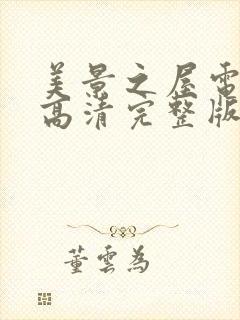 美景之屋電
高清完整版
董雲為